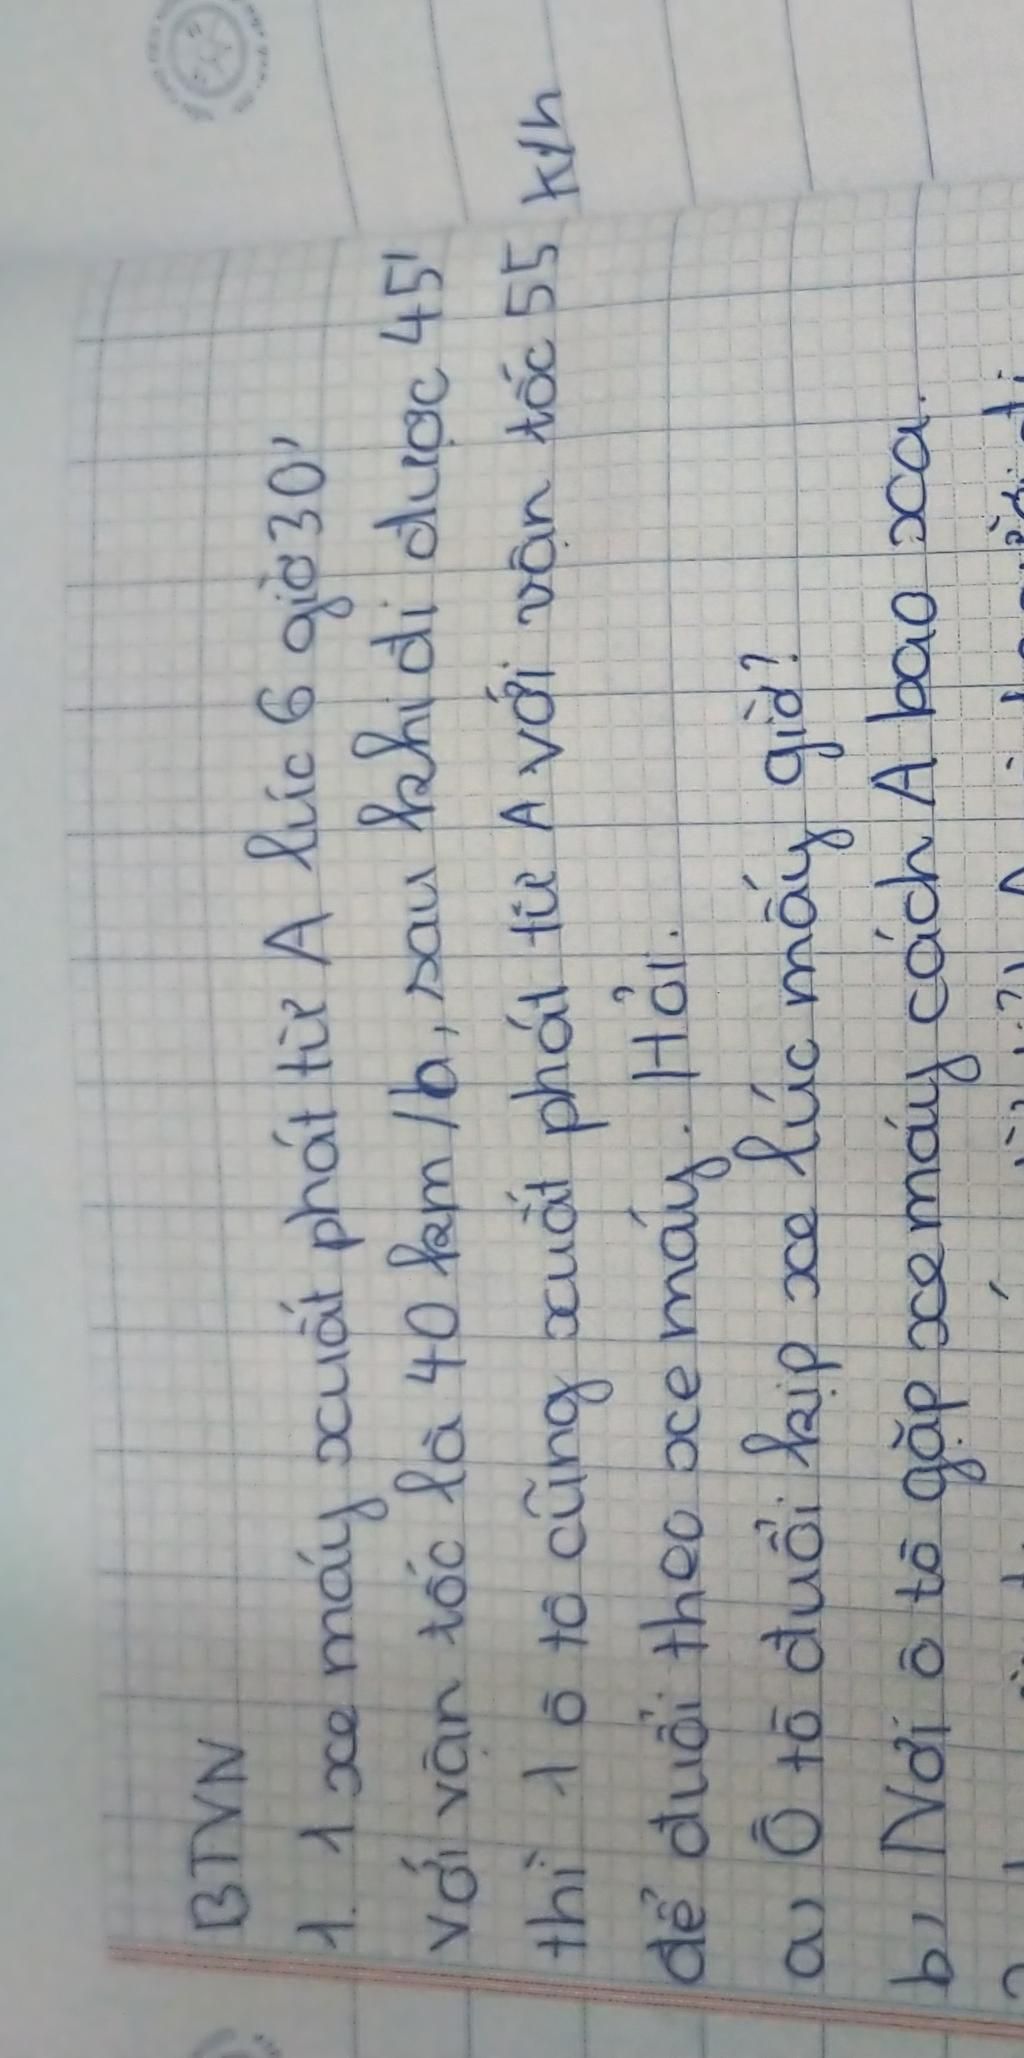 BTVN
1. 1 xe máy xuất phát từ A lúc 6 giờ 30'
với vận tốc là 40 km/h, sau khi đi được 45'
thì 1 ô tô cũng xuất phát từ A với vận tốc 55 k/h
để đuổi theo xe máy. Hỏi.
a) Ô tô đuổi kịp xe lúc mấy giờ?
b) Nơi ô tô gặp xe máy cách A bao xa.